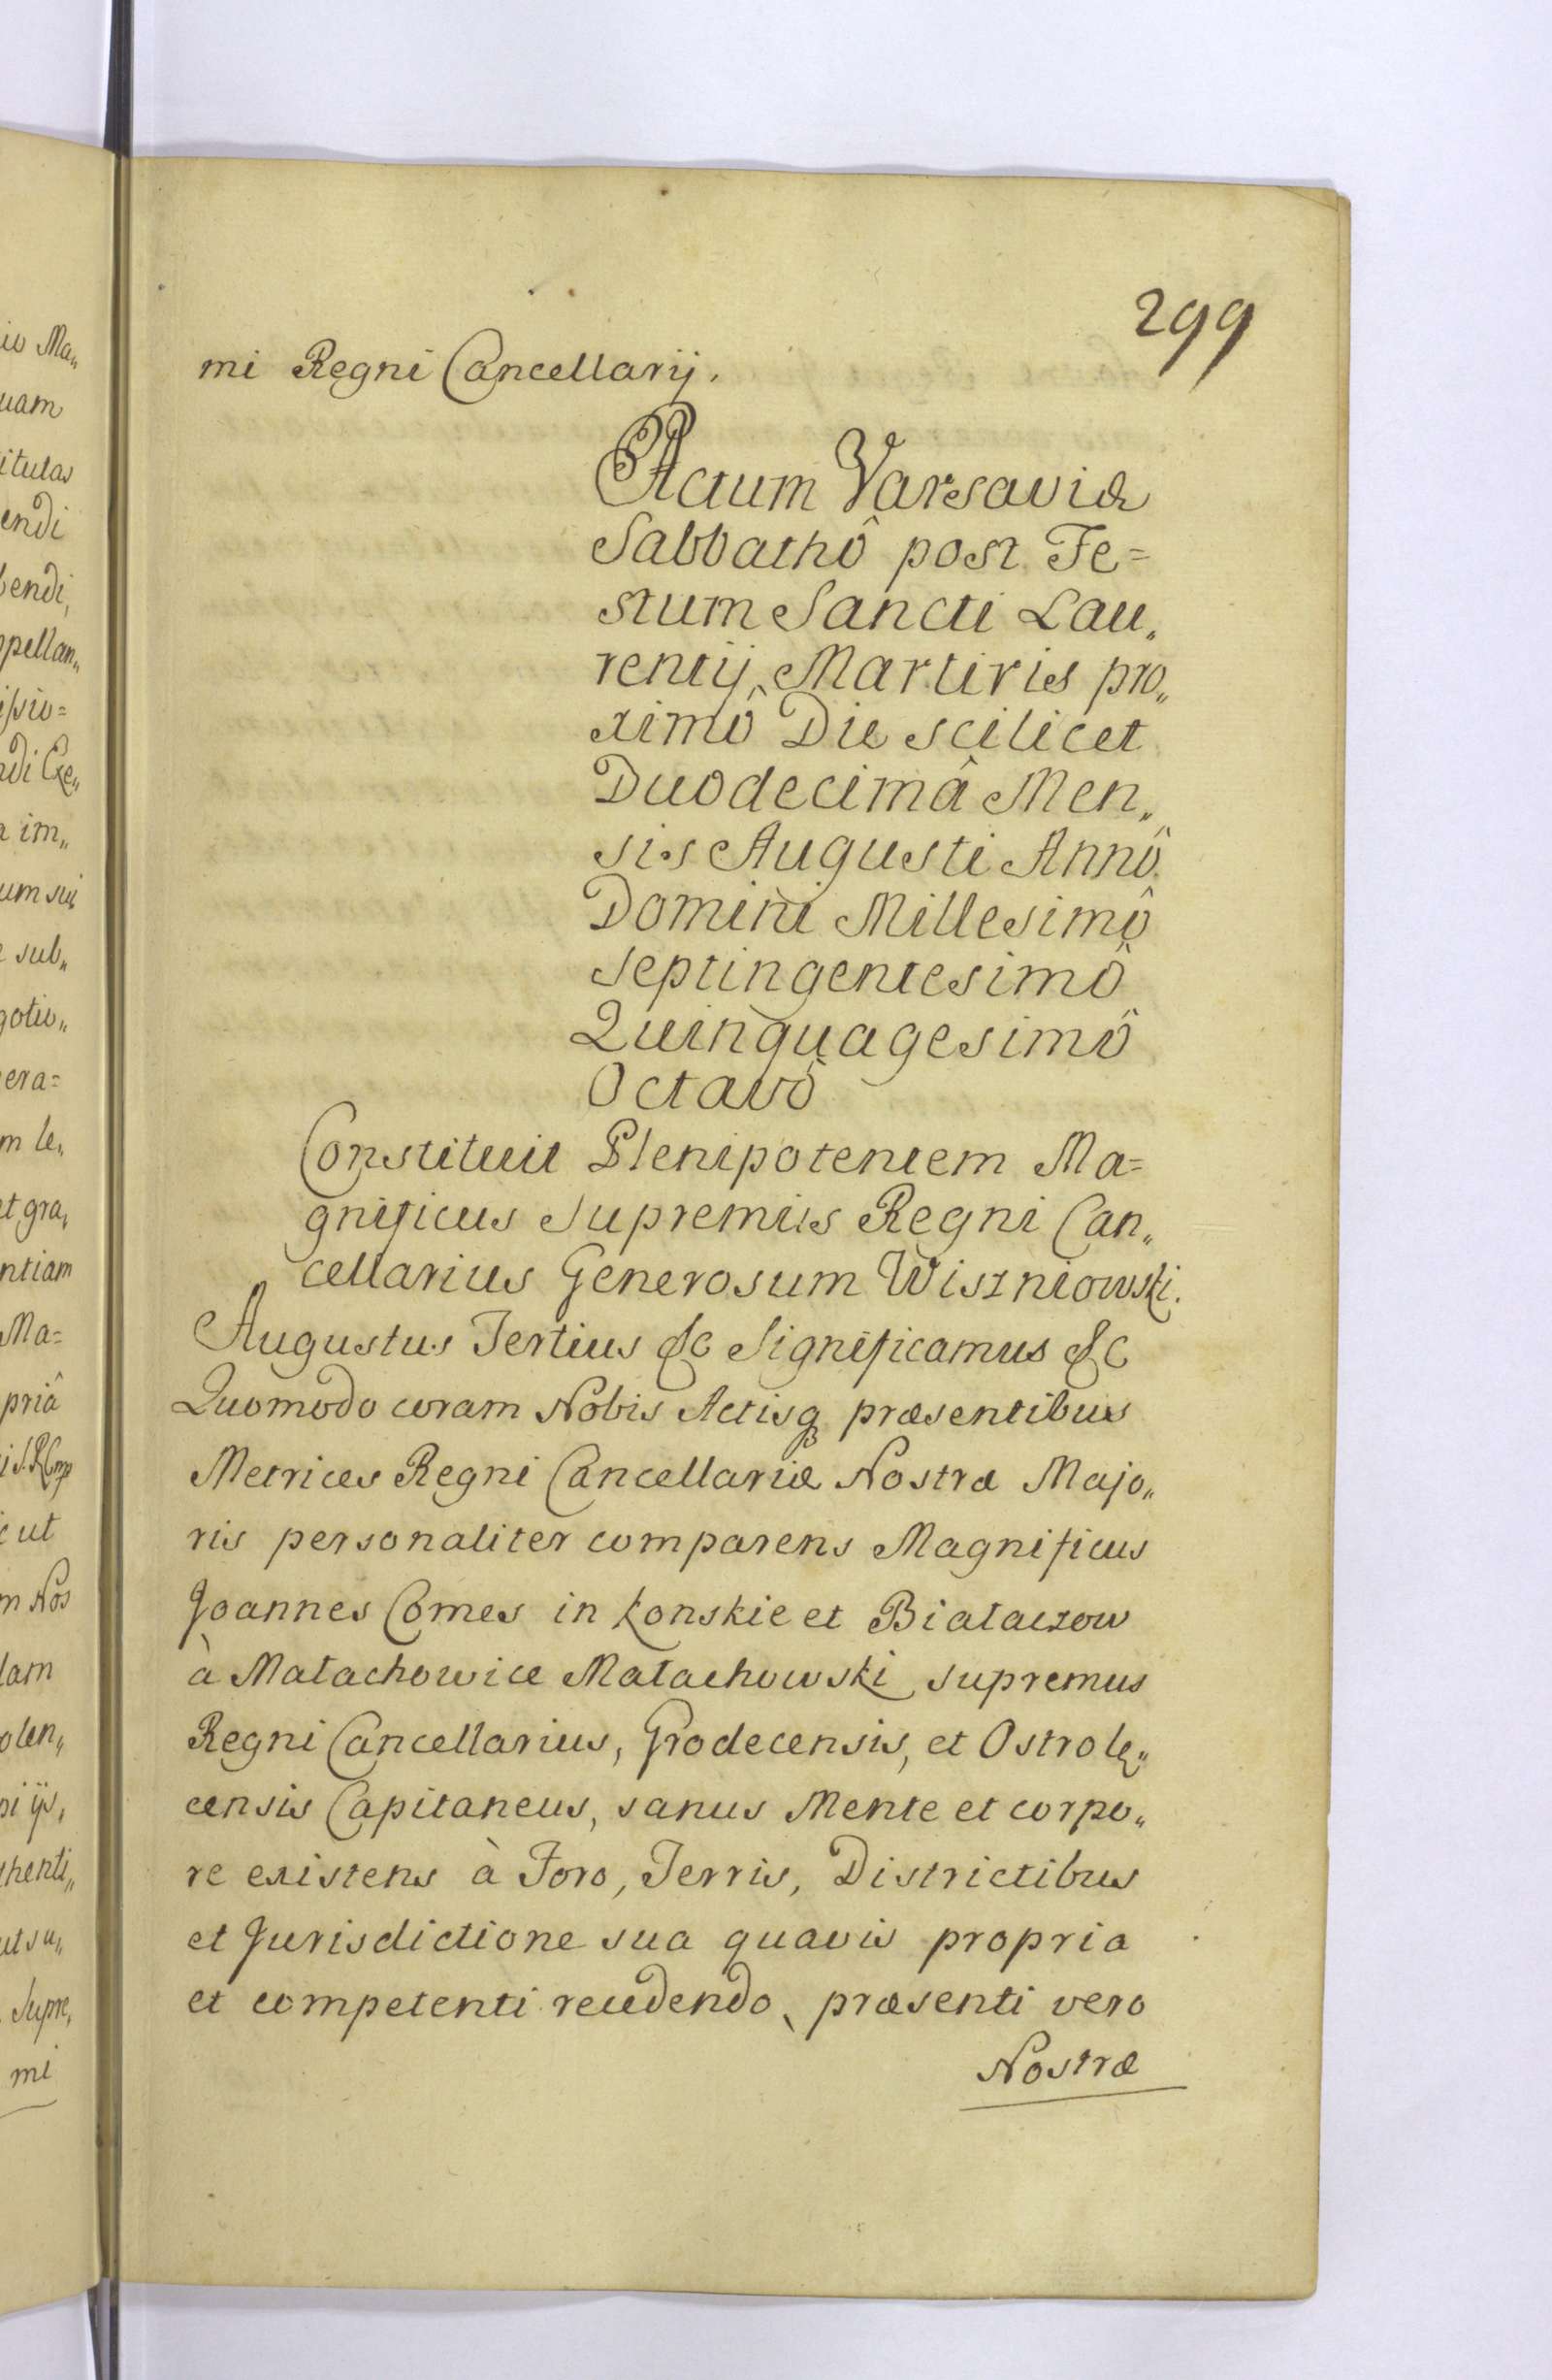 299
mi Regni Cancellarij.
Actum Varsaviæ
Sabbathô post Fe=
stum Sancti Lau„
rentij Martiris pro„
ximô Die scilicet
Duodecimâ Men„
sis Augusti Annô
Domini Millesimô
Septingentesimô
Quinquagesimô
Octavô
Constituit Plenipotentem Ma=
gnificus Supremus Regni Can„
cellarius Generosum Wiszniowski.
Augustus Tertius &c Significamus &c
Quomodo coram Nobis Actisq præsentibus
Metrices Regni Cancellariæ Nostræ Majo„
ris personaliter comparens Magnificus
Joannes Comes in Konskie et Białaczow
à Małachowice Małachowski Supremus
Regni Cancellarius, Grodecensis, et Ostrołę„
censis Capitaneus, sanus Mente et corpo„
re existens à Foro, Terris, Districtibus
et Jurisdictione sua quavis propria
et competenti recedendo, præsenti vero
Nostræ